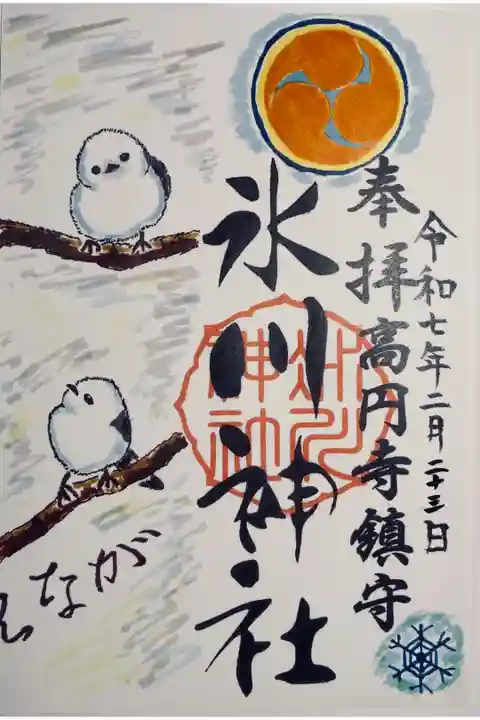 令和七年二月二十三日
奉拝高円寺鎮守
氷川神社
氷川
神社
ながえ